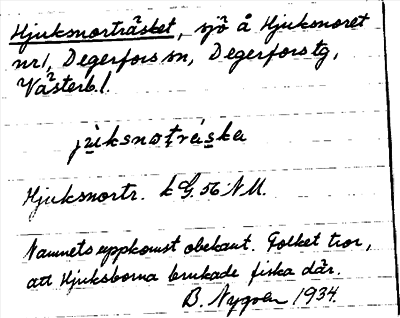 Hjuksnorträsket, sjö å Hjuksnoret
nr 1, Degerfors sn, Degerfors tg,
Västerb. l.
jʉ̀ksnoträ̀ska
Hjuksnortr. k G. 56 N M.
Namnets uppkomst obekant. Folket tror,
att Hjuksborna brukade fiska där.
B. Nygren 1934.